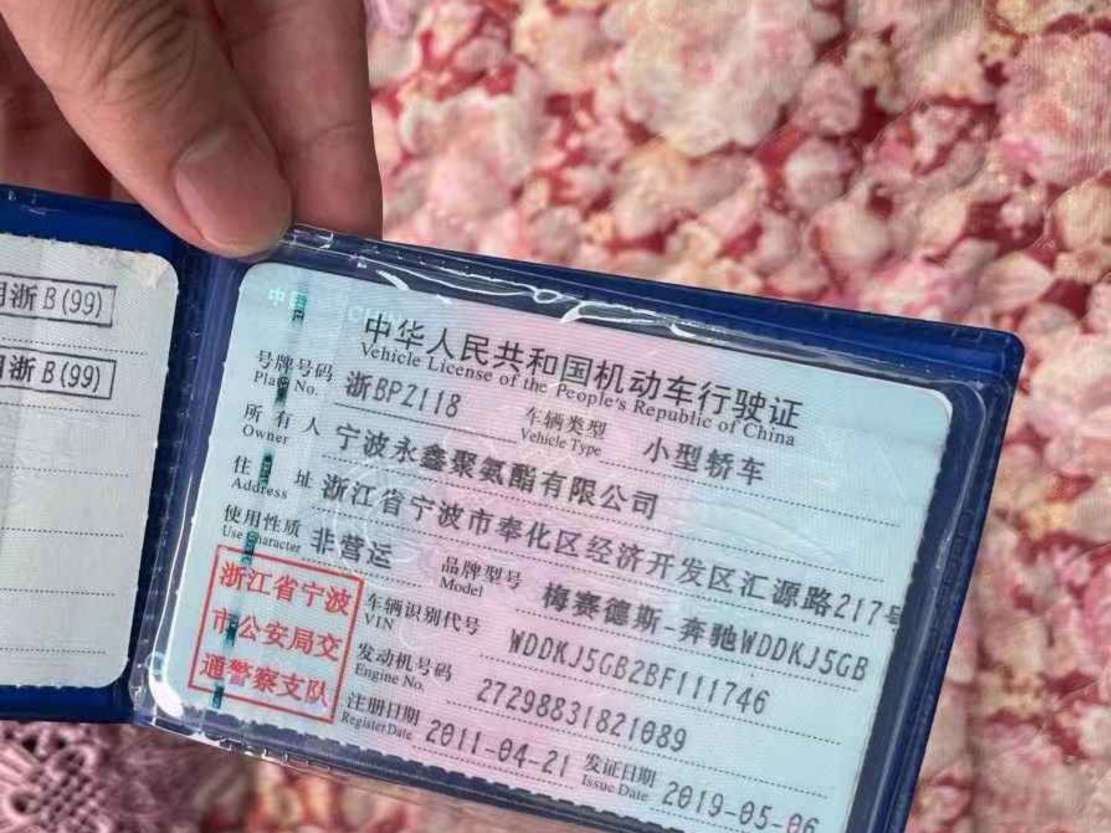 浙B(99)
浙B(99)
中华人民共和国机动车行驶证
Vehicle License of the People's Republic of China
号牌号码 浙BPZ118 车辆类型 小型轿车
Plate No. Vehicle Type
所有人 宁波永鑫聚氨酯有限公司
Owner
住址 浙江省宁波市奉化区经济开发区汇源路217号
Address
使用性质 非营运 品牌型号 梅赛德斯-奔驰WDDKJ5GB
Use Character Model
浙江省宁波
市公安局交
通警察支队
车辆识别代号 WDDKJ5GB2BF111746
VIN
发动机号码 27298831821089
Engine No.
注册日期 2011-04-21 发证日期 2019-05-06
Register Date Issue Date